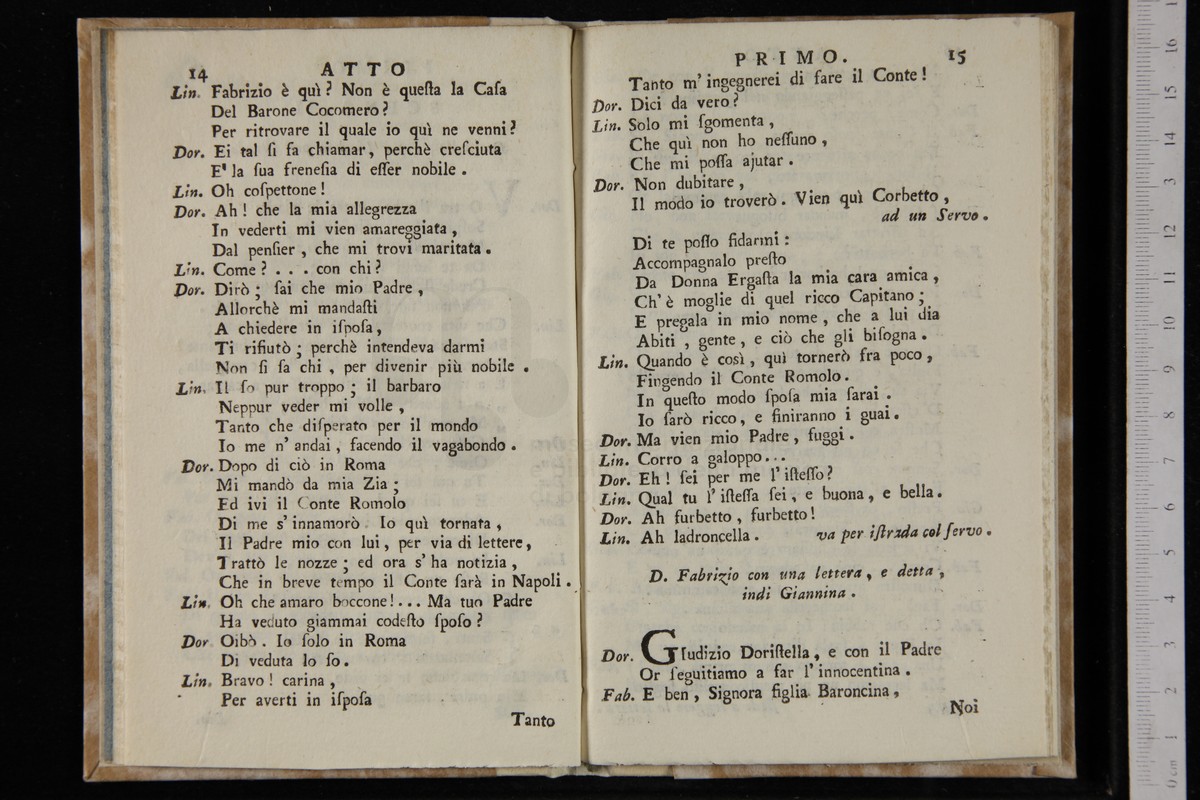 14 ATTO
Lin. Fabrizio è quì? Non è queſta la Caſa
Del Barone Cocomero?
Per ritrovare il quale io quì ne venni?
Dor. Ei tal ſi fa chiamar, perchè creſciuta
E' la ſua freneſia di eſſer nobile.
Lin. Oh coſpettone!
Dor. Ah! che la mia allegrezza
In vederti mi vien amareggiata,
Dal penſier, che mi trovi maritata.
Lin. Come? ... con chi?
Dor. Dirò; ſai che mio Padre,
Allorchè mi mandaſti
A chiedere in iſpoſa,
Ti rifiutò; perchè intendeva darmi
Non ſi ſa chi, per divenir più nobile.
Lin. Il ſo pur troppo; il barbaro
Neppur veder mi volle,
Tanto che diſperato per il mondo
Io me n' andai, facendo il vagabondo.
Dor. Dopo di ciò in Roma
Mi mandò da mia Zia;
Ed ivi il Conte Romolo
Di me s' innamorò. Io quì tornata,
Il Padre mio con lui, per via di lettere,
Trattò le nozze; ed ora s' ha notizia,
Che in breve tempo il Conte ſarà in Napoli.
Lin. Oh che amaro boccone!... Ma tuo Padre
Ha veduto giammai codeſto ſpoſo?
Dor. Oibò. Io ſolo in Roma
Di veduta lo ſo.
Lin. Bravo! carina,
Per averti in iſpoſa
Tanto
PRIMO. 15
Tanto m' ingegnerei di fare il Conte!
Dor. Dici da vero?
Lin. Solo mi ſgomenta,
Che quì non ho neſſuno,
Che mi poſſa ajutar.
Dor. Non dubitare,
Il modo io troverò. Vien quì Corbetto,
ad un Servo.
Di te poſſo fidarmi:
Accompagnalo preſto
Da Donna Ergaſta la mia cara amica,
Ch' è moglie di quel ricco Capitano;
E pregala in mio nome, che a lui dia
Abiti, gente, e ciò che gli biſogna.
Lin. Quando è così, quì tornerò fra poco,
Fingendo il Conte Romolo.
In queſto modo ſpoſa mia ſarai.
Io ſarò ricco, e finiranno i guai.
Dor. Ma vien mio Padre, fuggi.
Lin. Corro a galoppo...
Dor. Eh! ſei per me l' iſteſſo?
Lin. Qual tu l' iſteſſa ſei, e buona, e bella.
Dor. Ah furbetto, furbetto!
Lin. Ah ladroncella. va per iſtrada col ſervo.
D. Fabrizio con una lettera, e detta,
indi Giannina.
Dor. GIudizio Doriſtella, e con il Padre
Or ſeguitiamo a far l' innocentina.
Fab. E ben, Signora figlia Baroncina,
Noi